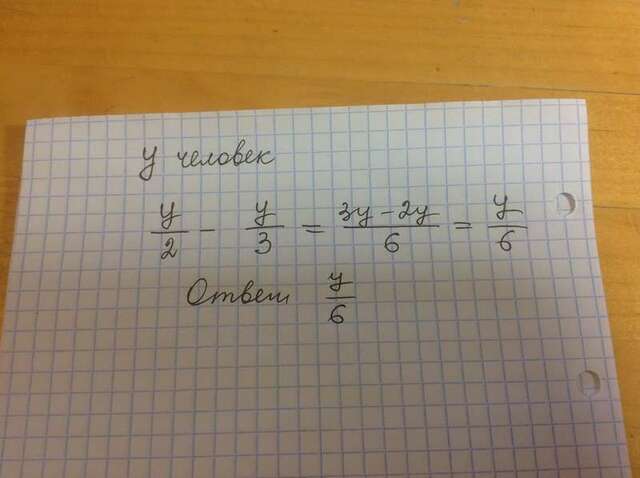 y человек
y/2 - y/3 = 3y-2y/6 = y/6
Ответ y/6